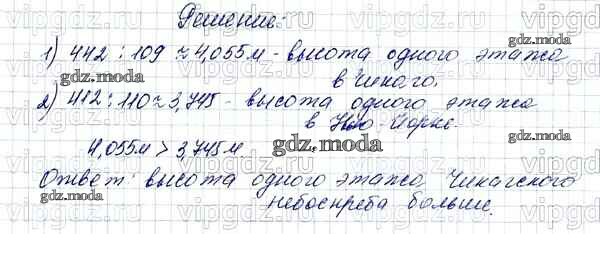 Решение:
1) 442 : 109 ≈ 4,055 м - высота одного этажа
в Чикаго.
2) 412 : 110 ≈ 3,745 - высота одного этажа
в Нью-Йорке.
4,055 м > 3,745 м.
Ответ: высота одного этажа Чикагского
небоскреба больше.
gdz.moda
gdz.moda
gdz.moda
gdz.moda
gdz.moda
gdz.moda